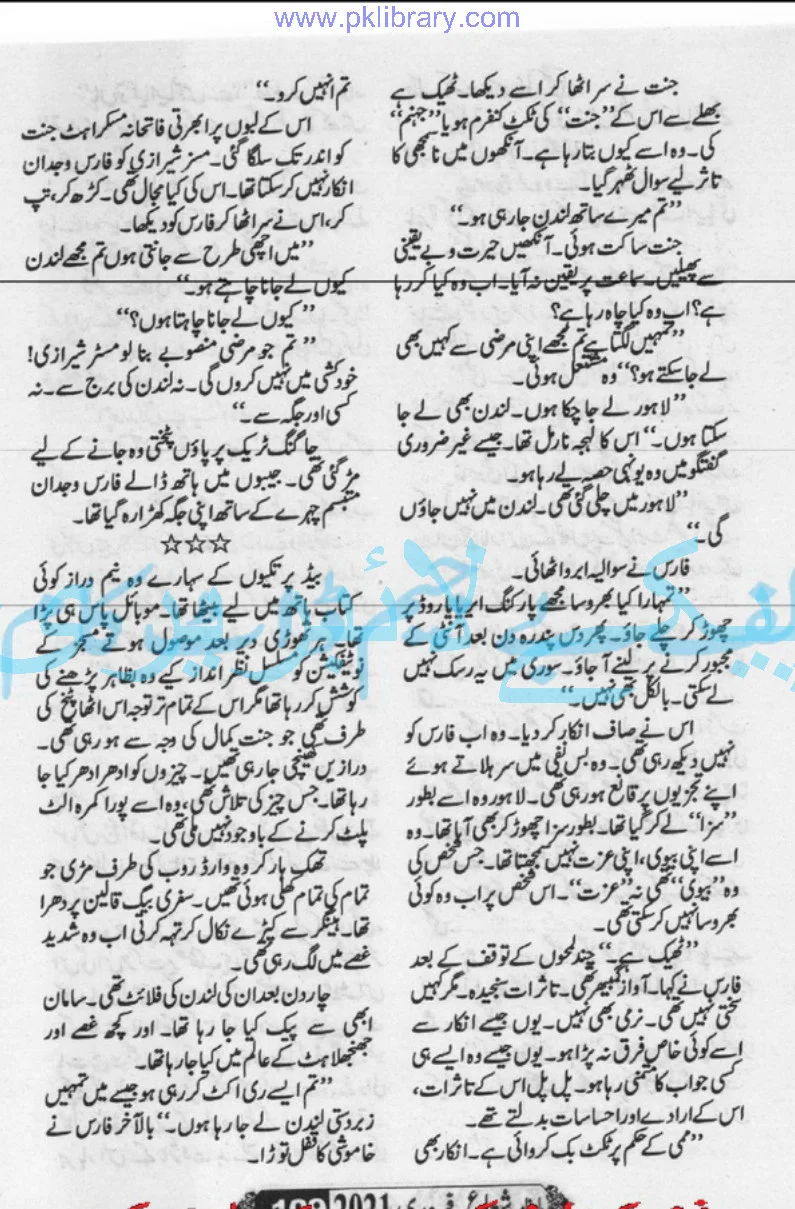 www.pklibrary.com
جنت نے سر اٹھا کر اسے دیکھا۔ ٹھیک ہے
بھلے سے اس کے ”جنت“ کی ٹکٹ کنفرم ہو یا ”جہنم“
کی۔ وہ اسے کیوں بتا رہا ہے۔ آنکھوں میں نا سمجھی کا
تاثر لیے سوال ٹھہر گیا۔
”تم میرے ساتھ لندن جا رہی ہو۔“
جنت ساکت ہوئی۔ آنکھیں حیرت و بے یقینی
سے پھیلیں۔ سماعت پر یقین نہ آیا۔ اب وہ کیا کر رہا
ہے؟ اب وہ کیا چاہ رہا ہے؟
”تمہیں لگتا ہے تم مجھے اپنی مرضی سے کہیں بھی
لے جا سکتے ہو؟“ وہ مشتعل ہوئی۔
”لاہور لے جا چکا ہوں۔ لندن بھی لے جا
سکتا ہوں۔“ اس کا لہجہ نارمل تھا۔ جیسے غیر ضروری
گفتگو میں وہ یونہی حصہ لے رہا ہو۔
”لاہور میں چلی گئی تھی۔ لندن میں نہیں جاؤں
گی۔“
فارس نے سوالیہ ابرو اٹھائی۔
”تمہارا کیا بھروسا مجھے پارکنگ ایریا یا روڈ پر
چھوڑ کر چلے جاؤ۔ پھر دس پندرہ دن بعد آنٹی کے
مجبور کرنے پر لینے آ جاؤ۔ سوری میں یہ رسک نہیں
لے سکتی۔ بالکل بھی نہیں۔“
اس نے صاف انکار کر دیا۔ وہ اب فارس کو
نہیں دیکھ رہی تھی۔ وہ بس نفی میں سر ہلاتے ہوئے
اپنے تجزیوں پر قانع ہو رہی تھی۔ لاہور وہ اسے بطور
”سزا“ لے کر گیا تھا۔ بطور سزا چھوڑ کر بھی آیا تھا۔ وہ
اسے اپنی بیوی، اپنی عزت نہیں سمجھتا تھا۔ جس شخص کی
وہ ”بیوی“ تھی نہ ”عزت“۔ اس شخص پر اب وہ کوئی
بھروسا نہیں کر سکتی تھی۔
”ٹھیک ہے۔“ چند لمحوں کے توقف کے بعد
فارس نے کہا۔ آواز گمبھیر تھی۔ تاثرات سنجیدہ۔ مگر کہیں
سختی نہیں تھی۔ نرمی بھی نہیں۔ یوں جیسے انکار سے
اسے کوئی خاص فرق نہ پڑا ہو۔ یوں جیسے وہ ایسے ہی
کسی جواب کا متمنی رہا ہو۔ پل پل اس کے تاثرات،
اس کے ارادے اور احساسات بدلتے تھے۔
”ممی کے حکم پر ٹکٹ بک کروائی ہے۔ انکار بھی
تم انہیں کرو۔“
اس کے لبوں پر ابھرتی فاتحانہ مسکراہٹ جنت
کو اندر تک سلگا گئی۔ مسز شیرازی کو فارس وجدان
انکار نہیں کر سکتا تھا۔ اس کی کیا مجال تھی۔ کڑھ کر، تپ
کر، اس نے سر اٹھا کر فارس کو دیکھا۔
”میں اچھی طرح سے جانتی ہوں تم مجھے لندن
کیوں لے جانا چاہتے ہو۔“
”کیوں لے جانا چاہتا ہوں؟“
”تم جو مرضی منصوبے بنا لو مسٹر شیرازی!
خودکشی میں نہیں کروں گی۔ نہ لندن کی برج سے۔ نہ
کسی اور جگہ سے۔“
جاگنگ ٹریک پر پاؤں پٹختی وہ جانے کے لیے
مڑ گئی تھی۔ جیبوں میں ہاتھ ڈالے فارس وجدان
متبسم چہرے کے ساتھ اپنی جگہ کھڑا رہ گیا تھا۔
☆☆☆
بیڈ پر تکیوں کے سہارے وہ نیم دراز کوئی
کتاب ہاتھ میں لیے بیٹھا تھا۔ موبائل پاس ہی پڑا
تھا۔ ہر تھوڑی دیر بعد موصول ہوتے مسجز کے
نوٹیفکیشن کو مسلسل نظر انداز کیے وہ بظاہر پڑھنے کی
کوشش کر رہا تھا مگر اس کے تمام تر توجہ اس اٹھا پٹخ کی
طرف تھی جو جنت کمال کی وجہ سے ہو رہی تھی۔
درازیں کھینچی جا رہی تھیں۔ چیزوں کو ادھر ادھر کیا جا
رہا تھا۔ جس چیز کی تلاش تھی، وہ اسے پورا کمرہ الٹ
پلٹ کرنے کے باوجود نہیں ملی تھی۔
تھک ہار کر وہ وارڈ روب کی طرف مڑی جو
تمام کی تمام کھلی ہوئی تھیں۔ سفری بیگ قالین پر دھرا
تھا۔ ہینگر سے کپڑے نکال کر تہہ کرتی اب وہ شدید
غصے میں لگ رہی تھی۔
چار دن بعد ان کی لندن کی فلائٹ تھی۔ سامان
ابھی سے پیک کیا جا رہا تھا۔ اور کچھ غصے اور
جھنجھلاہٹ کے عالم میں کیا جا رہا تھا۔
”تم ایسے ری ایکٹ کر رہی ہو جیسے میں تمہیں
زبردستی لندن لے جا رہا ہوں۔“ بالآخر فارس نے
خاموشی کا قفل توڑا۔
فروری 2021